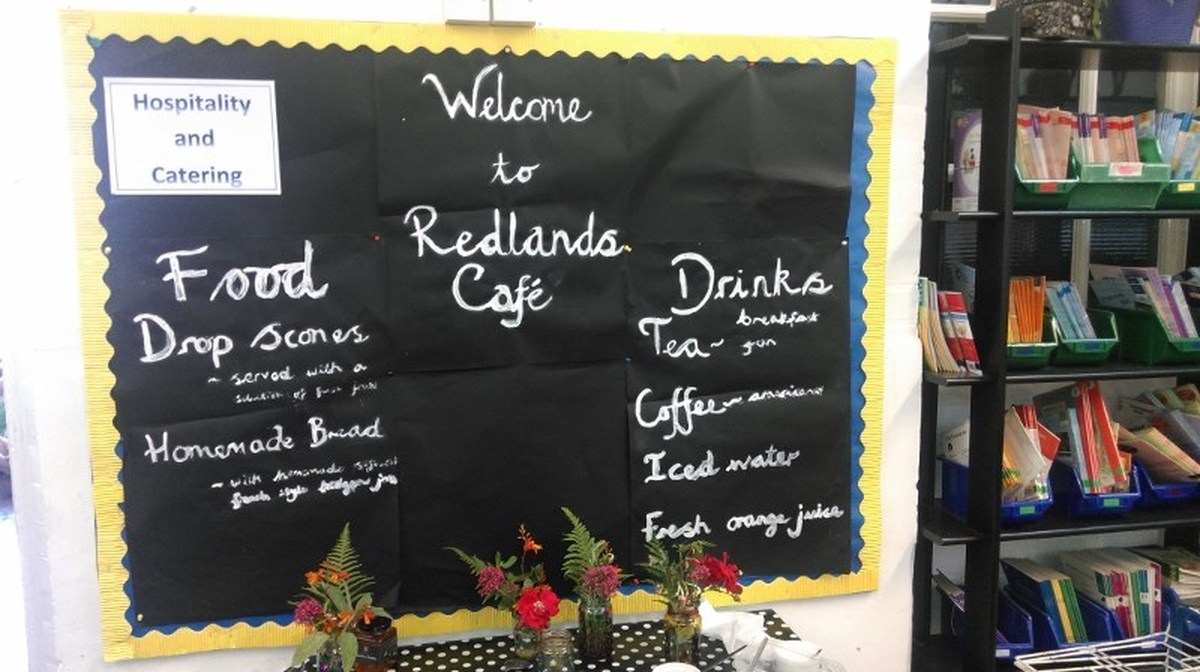 Hospitality
and
Catering
Welcome
to
Redlands
Café
Food
Drop scones
~ served with a
selection of fresh fruit
Homemade Bread
~ with homemade
french style
Drinks
Tea ~ breakfast
Coffee ~ americano
Iced water
Fresh orange juice